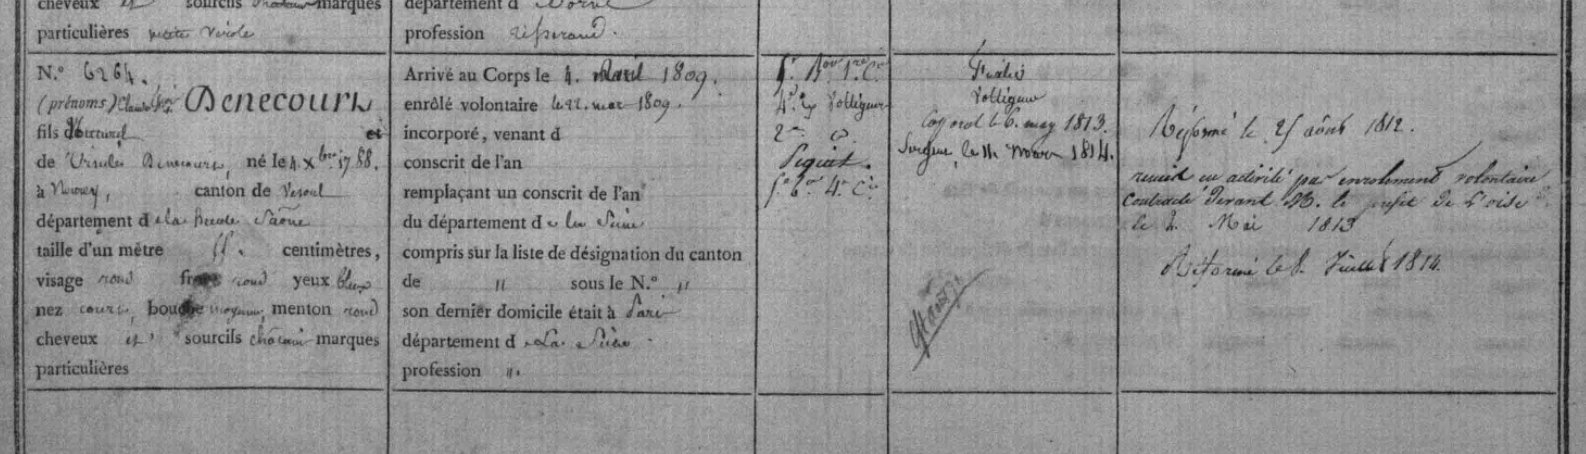 cheveux et sourcils marques
particulières petite vérole
département d
profession tisserand.
N.º 6264.
(prénoms) Claude DENECOURT
fils d et
de Ursule Denecourt, né le 4 Xbre 1788.
à canton de Vesoul
département d e la haute Saône
taille d'un mètre centimètres,
visage rond front rond yeux bleux
nez court, bouche moyenne, menton rond
cheveux et sourcils châtain marques
particulières
Arrivé au Corps le 4. Avril 1809.
enrôlé volontaire le 22. mar 1809.
incorporé, venant d
conscrit de l'an
remplaçant un conscrit de l'an
du département d e la Seine
compris sur la liste de désignation du canton
de " sous le N.º "
son dernier domicile était à Paris
département d e La Seine
profession ".
1re Cie
4e Voltigeur
2e
Piquet.
4e Cie
Fusilier
Voltigeur
Caporal le 6. may 1813.
Sergent, le 11 1814.
Réformé le 25 août 1812.
remis en activité par enrolement volontaire
contracté devant le préfet de l'oise
le 2 Mai 1813
Réformé le 8. Juillet 1814.